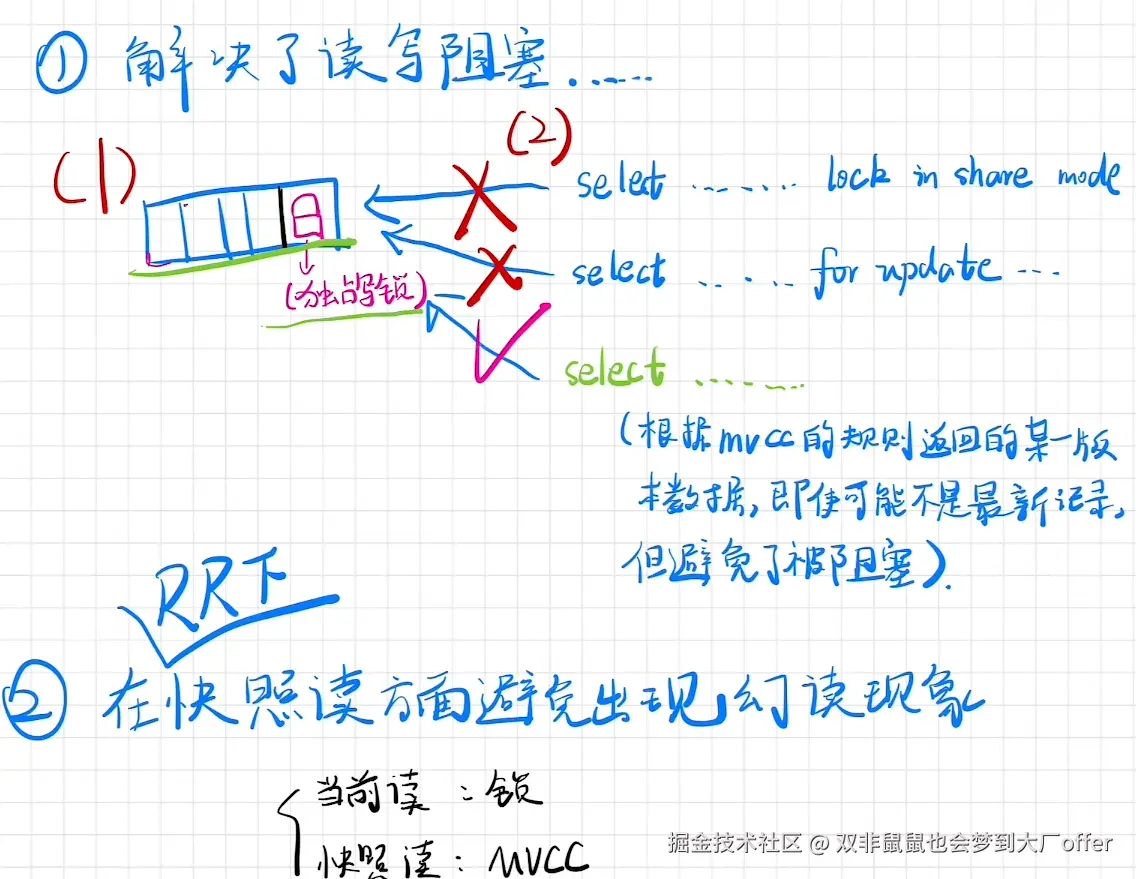 ① 解决了读写阻塞......
(1)
(2)
select ........ lock in share mode
select ..... for update ...
(独占写锁)
select ........
(根据mvcc的规则返回的某一版
本数据,即使可能不是最新记录,
但避免了被阻塞).
RR下
② 在快照读方面避免出现幻读现象
当前读:锁
快照读:MVCC
掘金技术社区 @ 双非鼠鼠也会梦到大厂offer